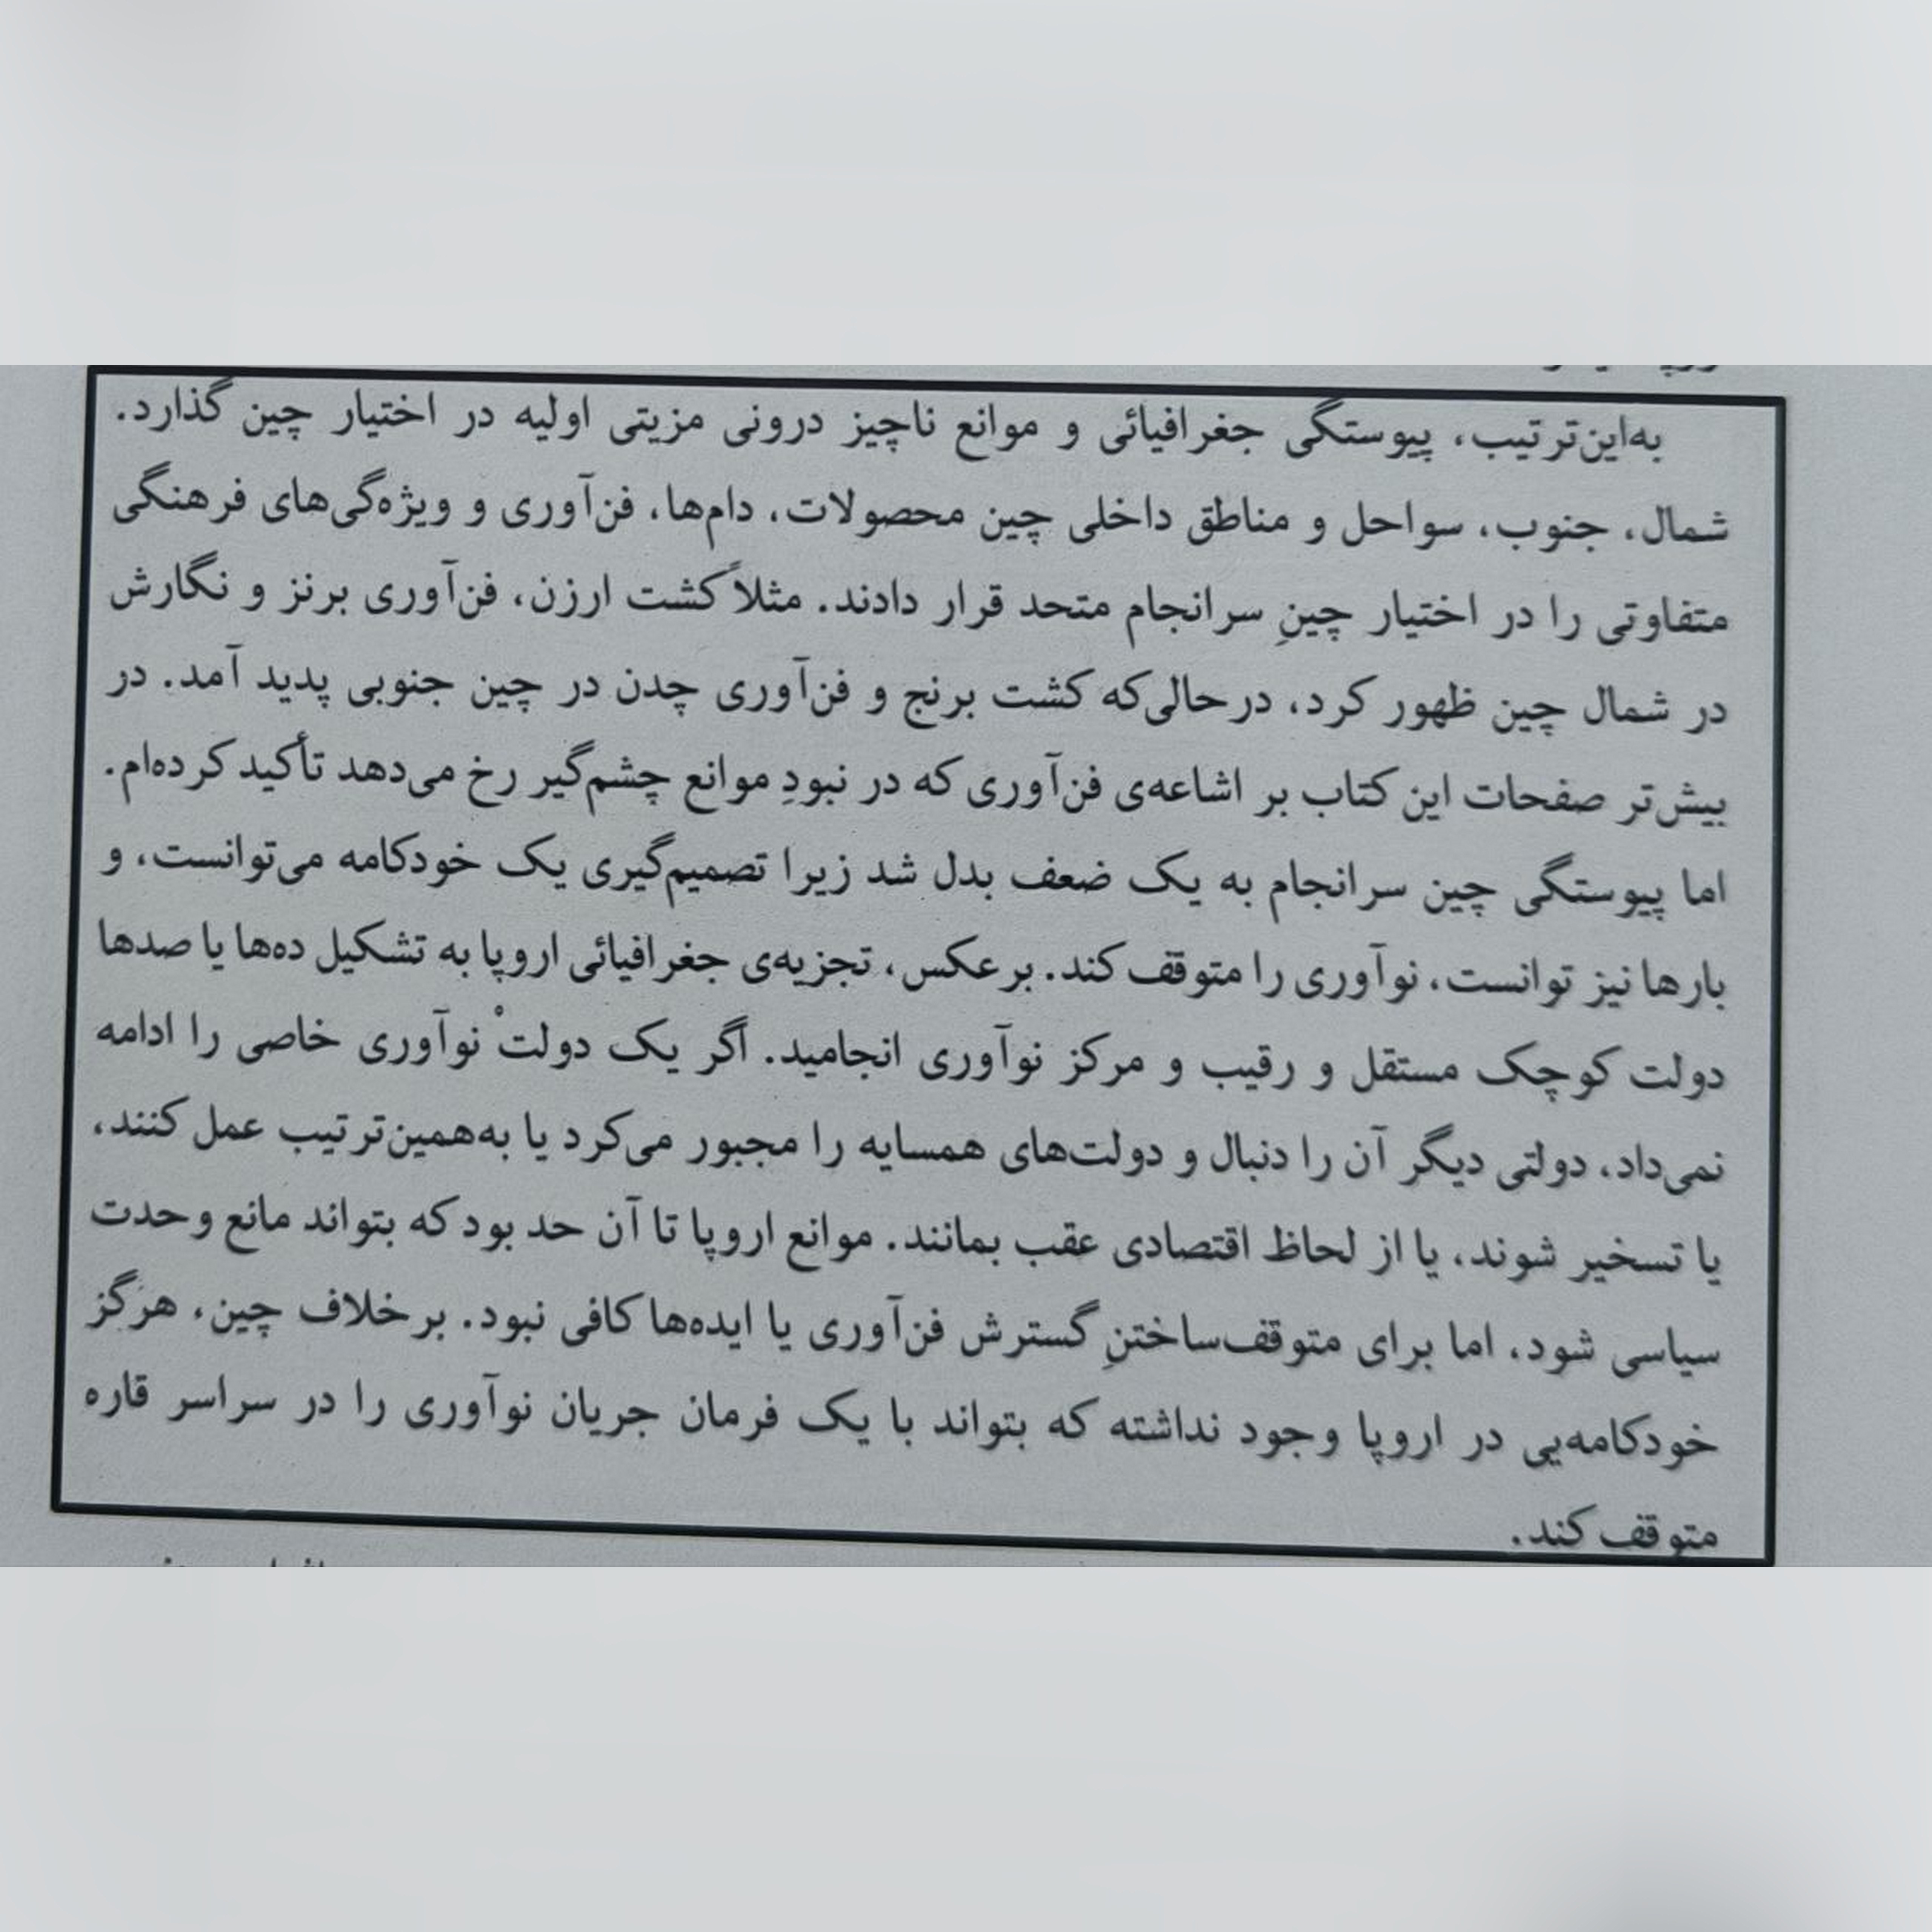 به‌این‌ترتیب، پیوستگی جغرافیائی و موانع ناچیز درونی مزیتی اولیه در اختیار چین گذارد.
شمال، جنوب، سواحل و مناطق داخلی چین محصولات، دام‌ها، فن‌آوری و ویژه‌گی‌های فرهنگی
متفاوتی را در اختیار چینِ سرانجام متحد قرار دادند. مثلاً کشت ارزن، فن‌آوری برنز و نگارش
در شمال چین ظهور کرد، درحالی‌که کشت برنج و فن‌آوری چدن در چین جنوبی پدید آمد. در
بیش‌تر صفحات این کتاب بر اشاعه‌ی فن‌آوری که در نبودِ موانع چشم‌گیر رخ می‌دهد تأکید کرده‌ام.
اما پیوستگی چین سرانجام به یک ضعف بدل شد زیرا تصمیم‌گیری یک خودکامه می‌توانست، و
بارها نیز توانست، نوآوری را متوقف کند. برعکس، تجزیه‌ی جغرافیائی اروپا به تشکیل ده‌ها یا صدها
دولت کوچک مستقل و رقیب و مرکز نوآوری انجامید. اگر یک دولتْ نوآوری خاصی را ادامه
نمی‌داد، دولتی دیگر آن را دنبال و دولت‌های همسایه را مجبور می‌کرد یا به‌همین‌ترتیب عمل کنند،
یا تسخیر شوند، یا از لحاظ اقتصادی عقب بمانند. موانع اروپا تا آن حد بود که بتواند مانع وحدت
سیاسی شود، اما برای متوقف‌ساختنِ گسترش فن‌آوری یا ایده‌ها کافی نبود. برخلاف چین، هرگز
خودکامه‌یی در اروپا وجود نداشته که بتواند با یک فرمان جریان نوآوری را در سراسر قاره
متوقف کند.